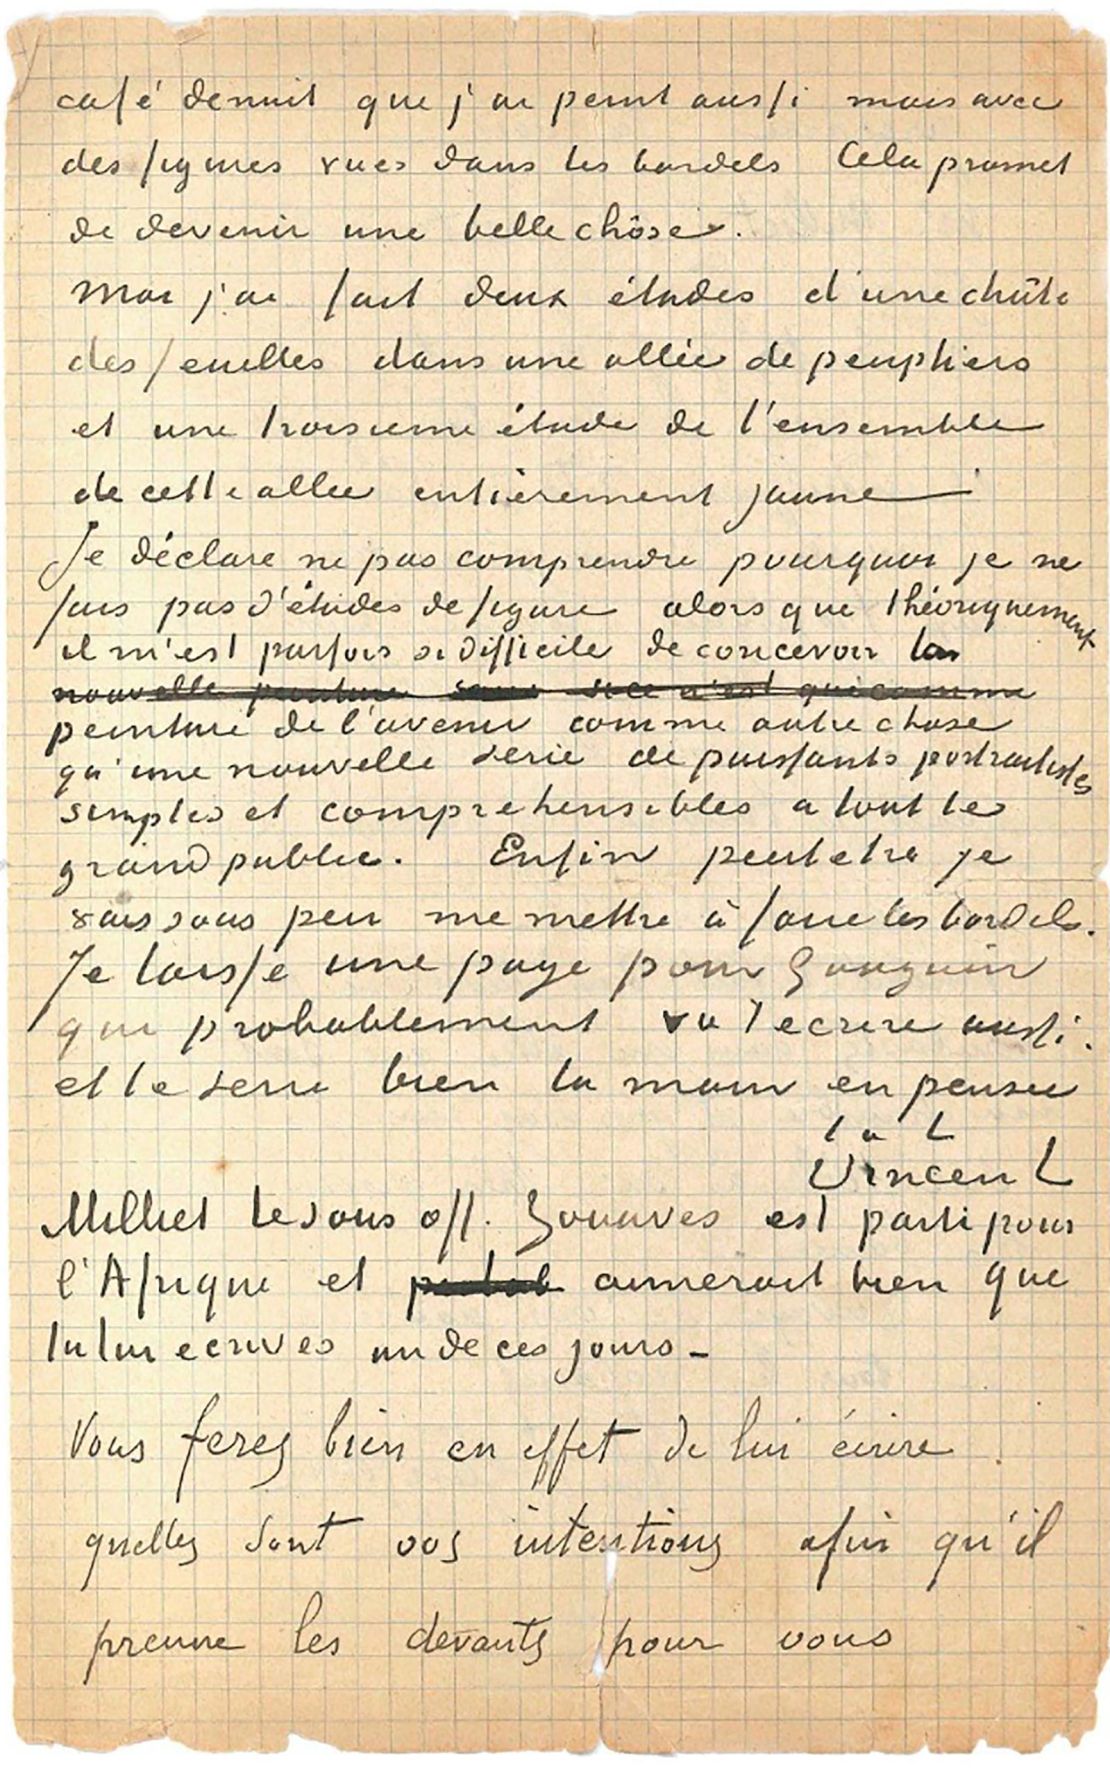 café de nuit que j'ai peint aussi mais avec
des figures vues dans les bordels Cela promet
de devenir une belle chôse.
Moi j'ai fait deux études d'une chûte
des feuilles dans une allée de peupliers
et une troisieme étude de l'ensemble
de cette allée entièrement jaune
Je déclare ne pas comprendre pourquoi je ne
fais pas d'études de figure alors que théoriquement
il m'est parfois si difficile de concevoir la
nouvelle peinture sans si ce n'est que comme
peinture de l'avenir comme autre chose
qu'une nouvelle serie de puissants portraitistes
simples et comprehensibles a tout le
grand public. Enfin peutetre je
vais sous peu me mettre à faire les bordels.
Je laisse une page pour Gauguin
qui probablement va t'ecrire aussi.
et te serre bien la main en pensée
t a t
Vincent
Milliet le sous off. Zouaves est parti pour
l'Afrique et aimerait bien que
tu lui ecrives un de ces jours –
Vous ferez bien en effet de lui écrire
quelles sont vos intentions afin qu'il
prenne les devants pour vous